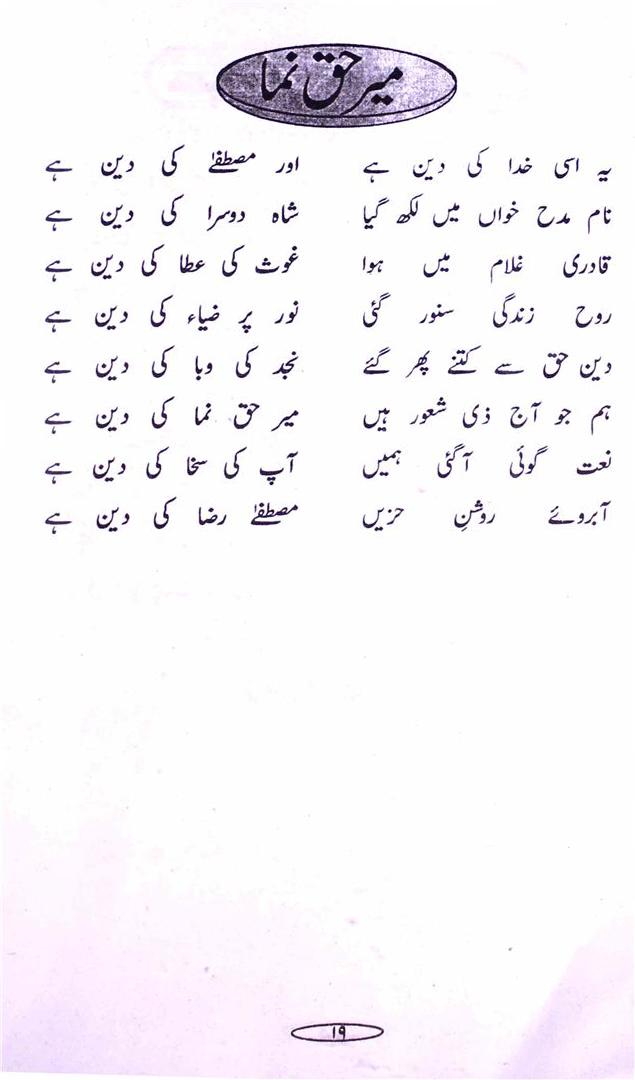 میر حق نما
یہ اسی خدا کی دین ہے اور مصطفےٰ کی دین ہے
نام مدح خواں میں لکھ گیا شاہ دوسرا کی دین ہے
قادری غلام میں ہوا غوث کی عطا کی دین ہے
روح زندگی سنور گئی نور پر ضیاء کی دین ہے
دین حق سے کتنے پھر گئے نجد کی وبا کی دین ہے
ہم جو آج ذی شعور ہیں میر حق نما کی دین ہے
نعت گوئی آگئی ہمیں آپ کی سخا کی دین ہے
آبروئے روشنِ حزیں مصطفےٰ رضا کی دین ہے
۱۹